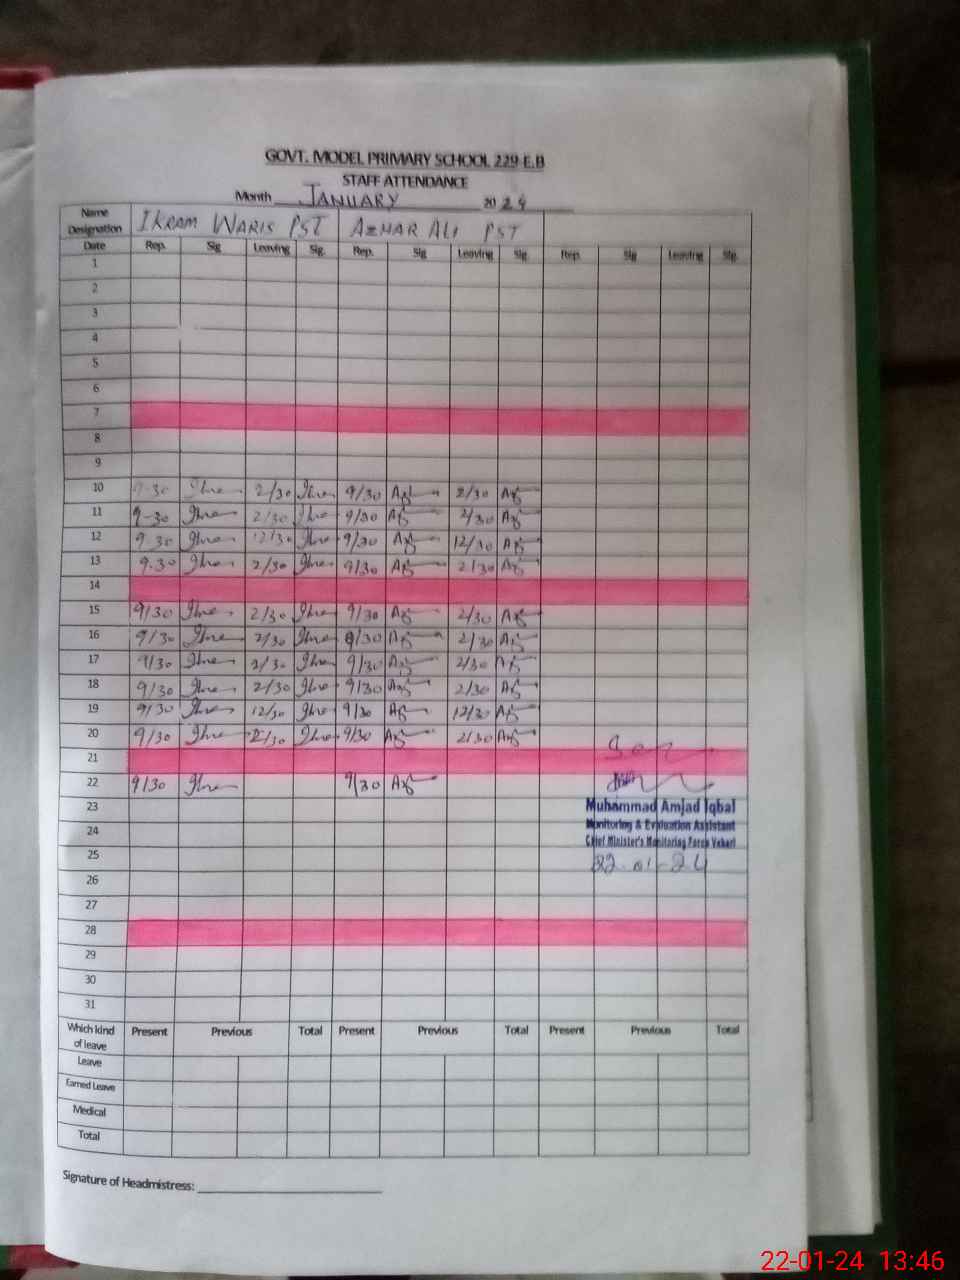 GOVT. MODEL PRIMARY SCHOOL 229-E.B
STAFF ATTENDANCE
Month JANUARY 2024
Name Designation IKRAM WARIS PST AZHAR ALI PST
Date Rep. Sig Leaving Sig. Rep. Sig Leaving Sig. Rep. Sig Leaving Sig.
1
2
3
4
5
6
7
8
9
10 9-30 2/30 9/30 2/30
11 9-30 2/30 9/30 2/30
12 9.30 12/30 9/30 12/30
13 9.30 2/30 9/30 2/30
14
15 9/30 2/30 9/30 2/30
16 9/30 2/30 9/30 2/30
17 9/30 2/30 9/30 2/30
18 9/30 2/30 9/30 2/30
19 9/30 12/30 9/30 12/30
20 9/30 2/30 9/30 2/30
21
22 9/30 9/30
23 Muhammad Amjad Iqbal
24 Monitoring & Evaluation Assistant
Chief Minister's Monitoring Force Vehari
25 22-01-24
26
27
28
29
30
31
Which kind of leave Present Previous Total Present Previous Total Present Previous Total
Leave
Earned Leave
Medical
Total
Signature of Headmistress:
22-01-24 13:46